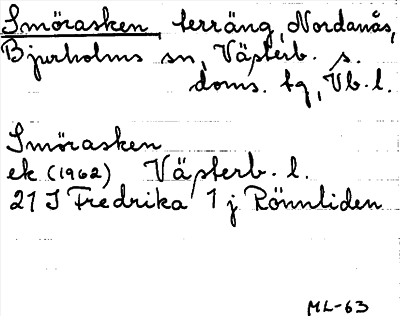 Smörasken, terräng, Nordanås,
Bjurholms sn, Västerb. s.
doms. tg, Vb. l.
Smörasken
ek (1962) Västerb. l.
21 J Fredrika 1 j Rönnliden
ML-63